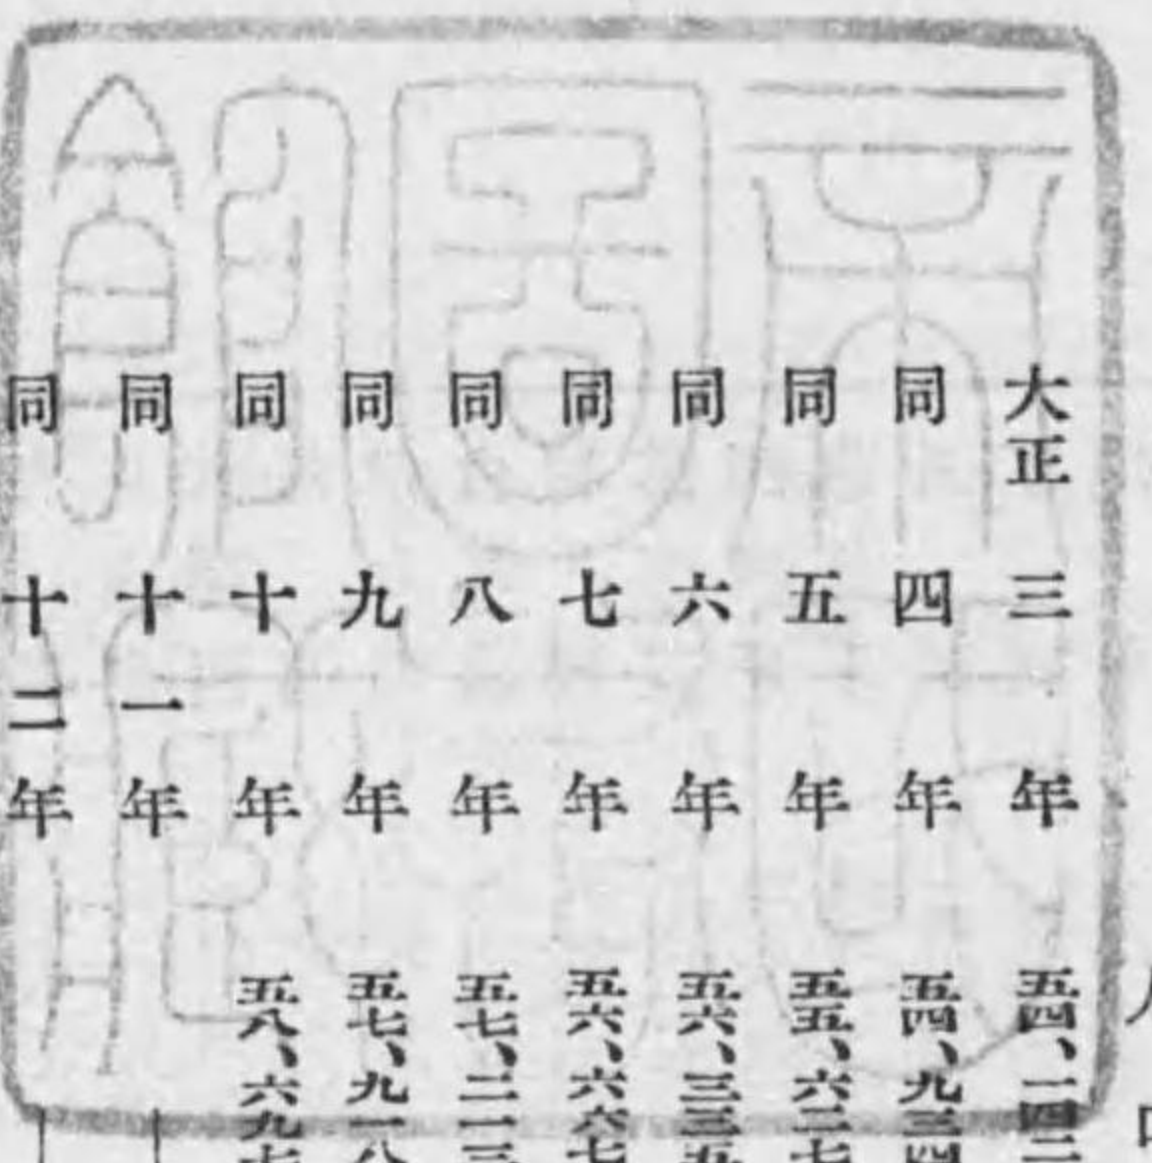 大正三年 五四、一四二
同四年 五四、九三四
同五年 五五、六二七
同六年 五六、三三五
同七年 五六、六六七
同八年 五七、二一三
同九年 五七、九一八
同十年 五八、六九七
同十一年
同十二年